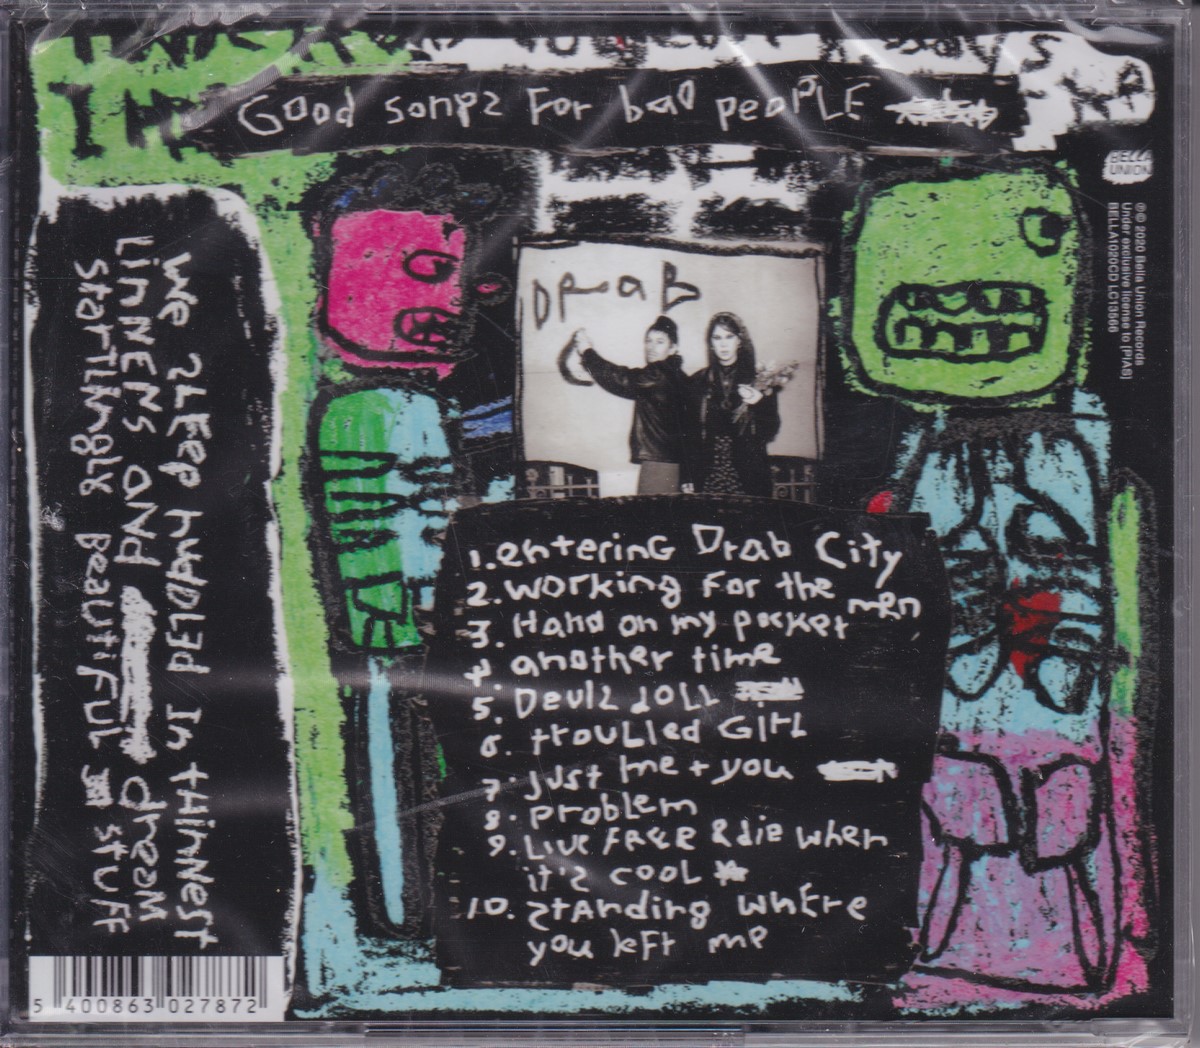 Good songs For bad peoPLE
BELLA
UNION
℗© 2020 Bella Union Records
Under exclusive license to [PIAS]
BELLA1020CD LC13566
DraB
we sleep huddled in thinnest
LinnENS and dream
startlingly Beautiful stuff
1. entering Drab City
2. working for the men
3. Hand on my pocket
4 another time
5. Devil doll
6. troubled Girl
7. just me + you
8. problem
9. Live FREE & die when
it's cool
10. standing where
you left me
5 400863 027872